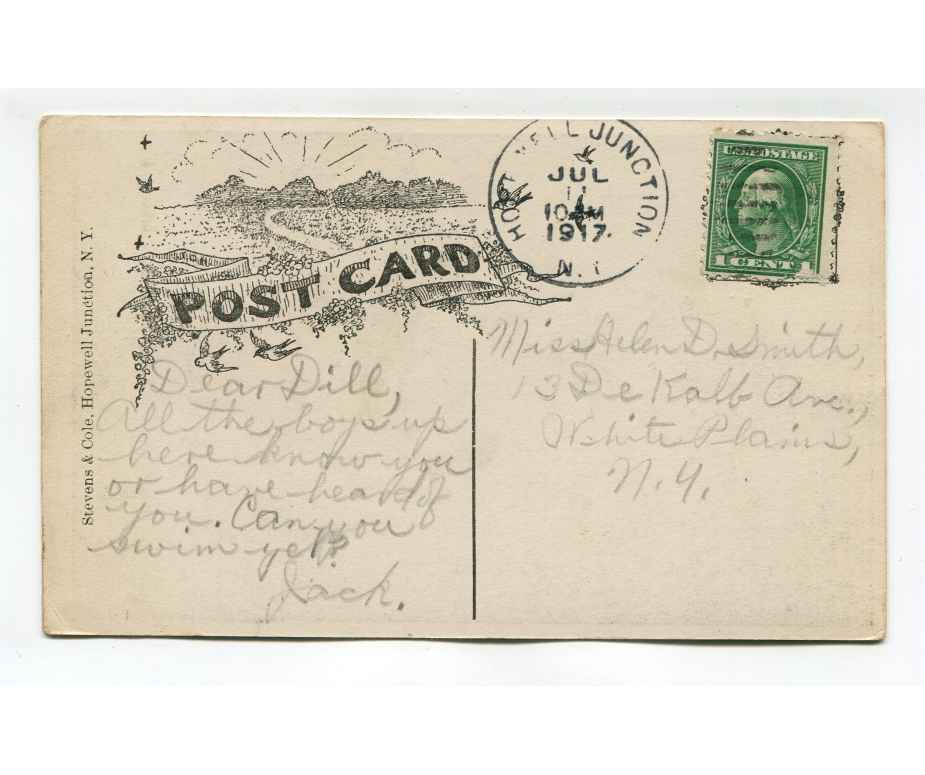 POST CARD
HOPEWELL JUNCTION
JUL
11
10 AM
1917.
N.Y.
U.S. POSTAGE
1 CENT 1
Stevens & Cole, Hopewell Junction, N. Y.
Dear Dill,
All the boys up
here know you
or have heard of
you. Can you
swim yet?
Jack.
Miss Helen D. Smith,
13 De Kalb Ave.,
White Plains,
N.Y.